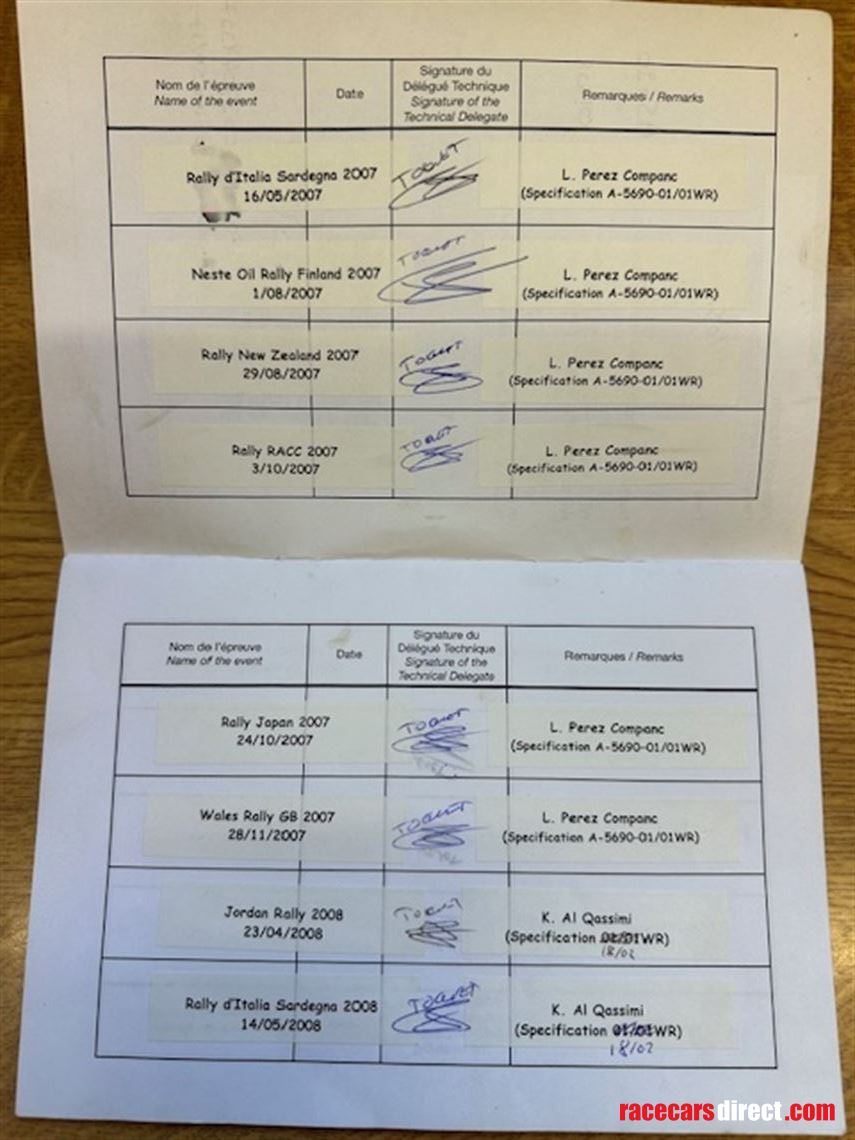 Nom de l'épreuve
Name of the event
Date
Signature du
Délégué Technique
Signature of the
Technical Delegate
Remarques / Remarks
Rally d'Italia Sardegna 2007
16/05/2007
L. Perez Companc
(Specification A-5690-01/01WR)
Neste Oil Rally Finland 2007
1/08/2007
L. Perez Companc
(Specification A-5690-01/01WR)
Rally New Zealand 2007
29/08/2007
L. Perez Companc
(Specification A-5690-01/01WR)
Rally RACC 2007
3/10/2007
L. Perez Companc
(Specification A-5690-01/01WR)
Nom de l'épreuve
Name of the event
Date
Signature du
Délégué Technique
Signature of the
Technical Delegate
Remarques / Remarks
Rally Japan 2007
24/10/2007
L. Perez Companc
(Specification A-5690-01/01WR)
Wales Rally GB 2007
28/11/2007
L. Perez Companc
(Specification A-5690-01/01WR)
Jordan Rally 2008
23/04/2008
K. Al Qassimi
(Specification 01WR)
18/02
Rally d'Italia Sardegna 2008
14/05/2008
K. Al Qassimi
(Specification 01WR)
18/02
racecarsdirect.com